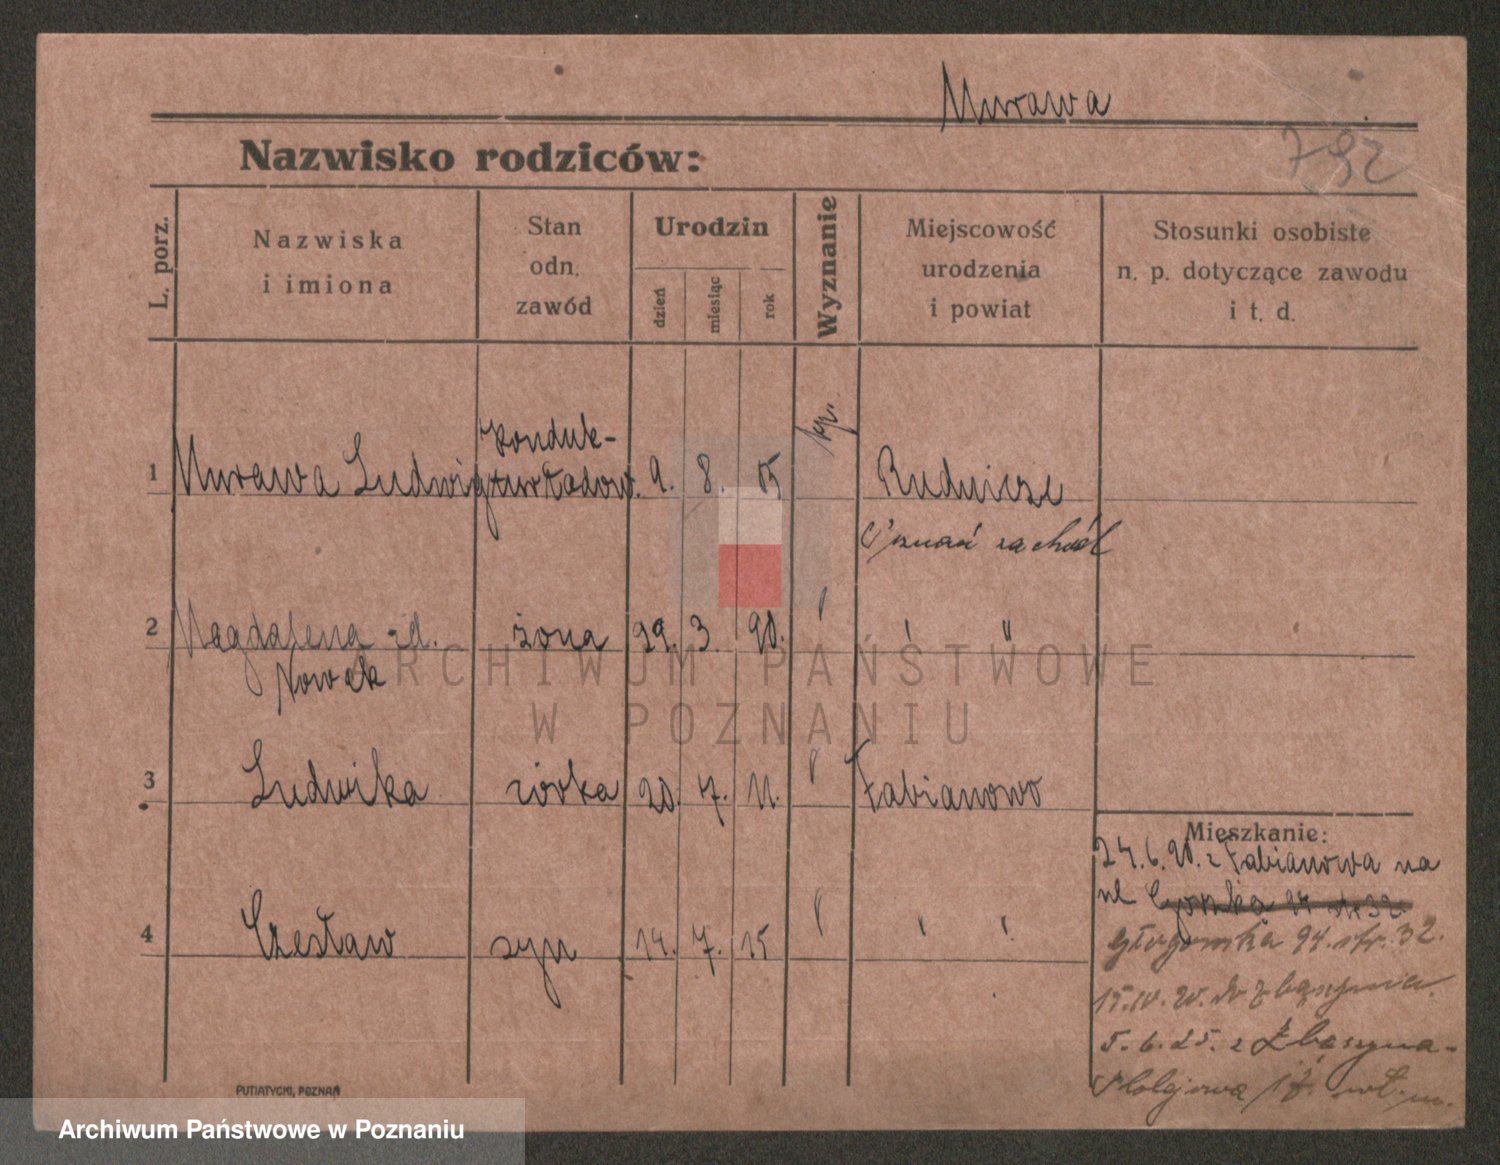 Murawa
792
Nazwisko rodziców:
L. porz.
Nazwiska
i imiona
Stan
odn.
zawód
Urodzin
dzień
miesiąc
rok
Wyznanie
Miejscowość
urodzenia
i powiat
Stosunki osobiste
n. p. dotyczące zawodu
i t. d.
1 Murawa Ludwig konduk-
9. 8. 85 Rudnicze
2 Magdalena zd. żona 29. 3. 90. " "
Nowak
3 Ludwika córka 20. 7. 11. Fabianowo
4 Czesław syn 14. 7. 15 " "
Mieszkanie:
24.6.20. z Fabianowa na
ul
Głogowska 94. str. 32.
15.10.20. do Zbąszynia
5.6.25. z Zbąszyna-
Kolejowa
PUTIATYCKI, POZNAŃ
ARCHIWUM PAŃSTWOWE
W POZNANIU
Archiwum Państwowe w Poznaniu